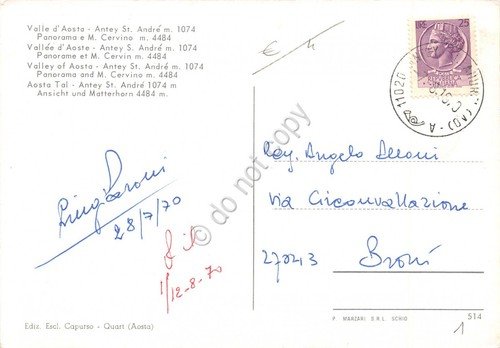 Valle d'Aosta - Antey St. André m. 1074
Panorama e M. Cervino m. 4484
Vallée d'Aoste - Antey S. André m. 1074
Panorame et M. Cervin m. 4484
Valley of Aosta - Antey St. André m. 1074
Panorama and M. Cervin m. 4484
Aosta Tal - Antey St. André 1074 m
Ansicht und Matterhorn 4484 m.
€ 4
25
11020
(AO) - A
Rag. Angelo
Via Circonvallazione
27043 Broni
Luigi
28/7/70
12-8-70
do not copy
Ediz. Escl. Capurso - Quart (Aosta)
P. MARZARI S.R.L. SCHIO
514
1